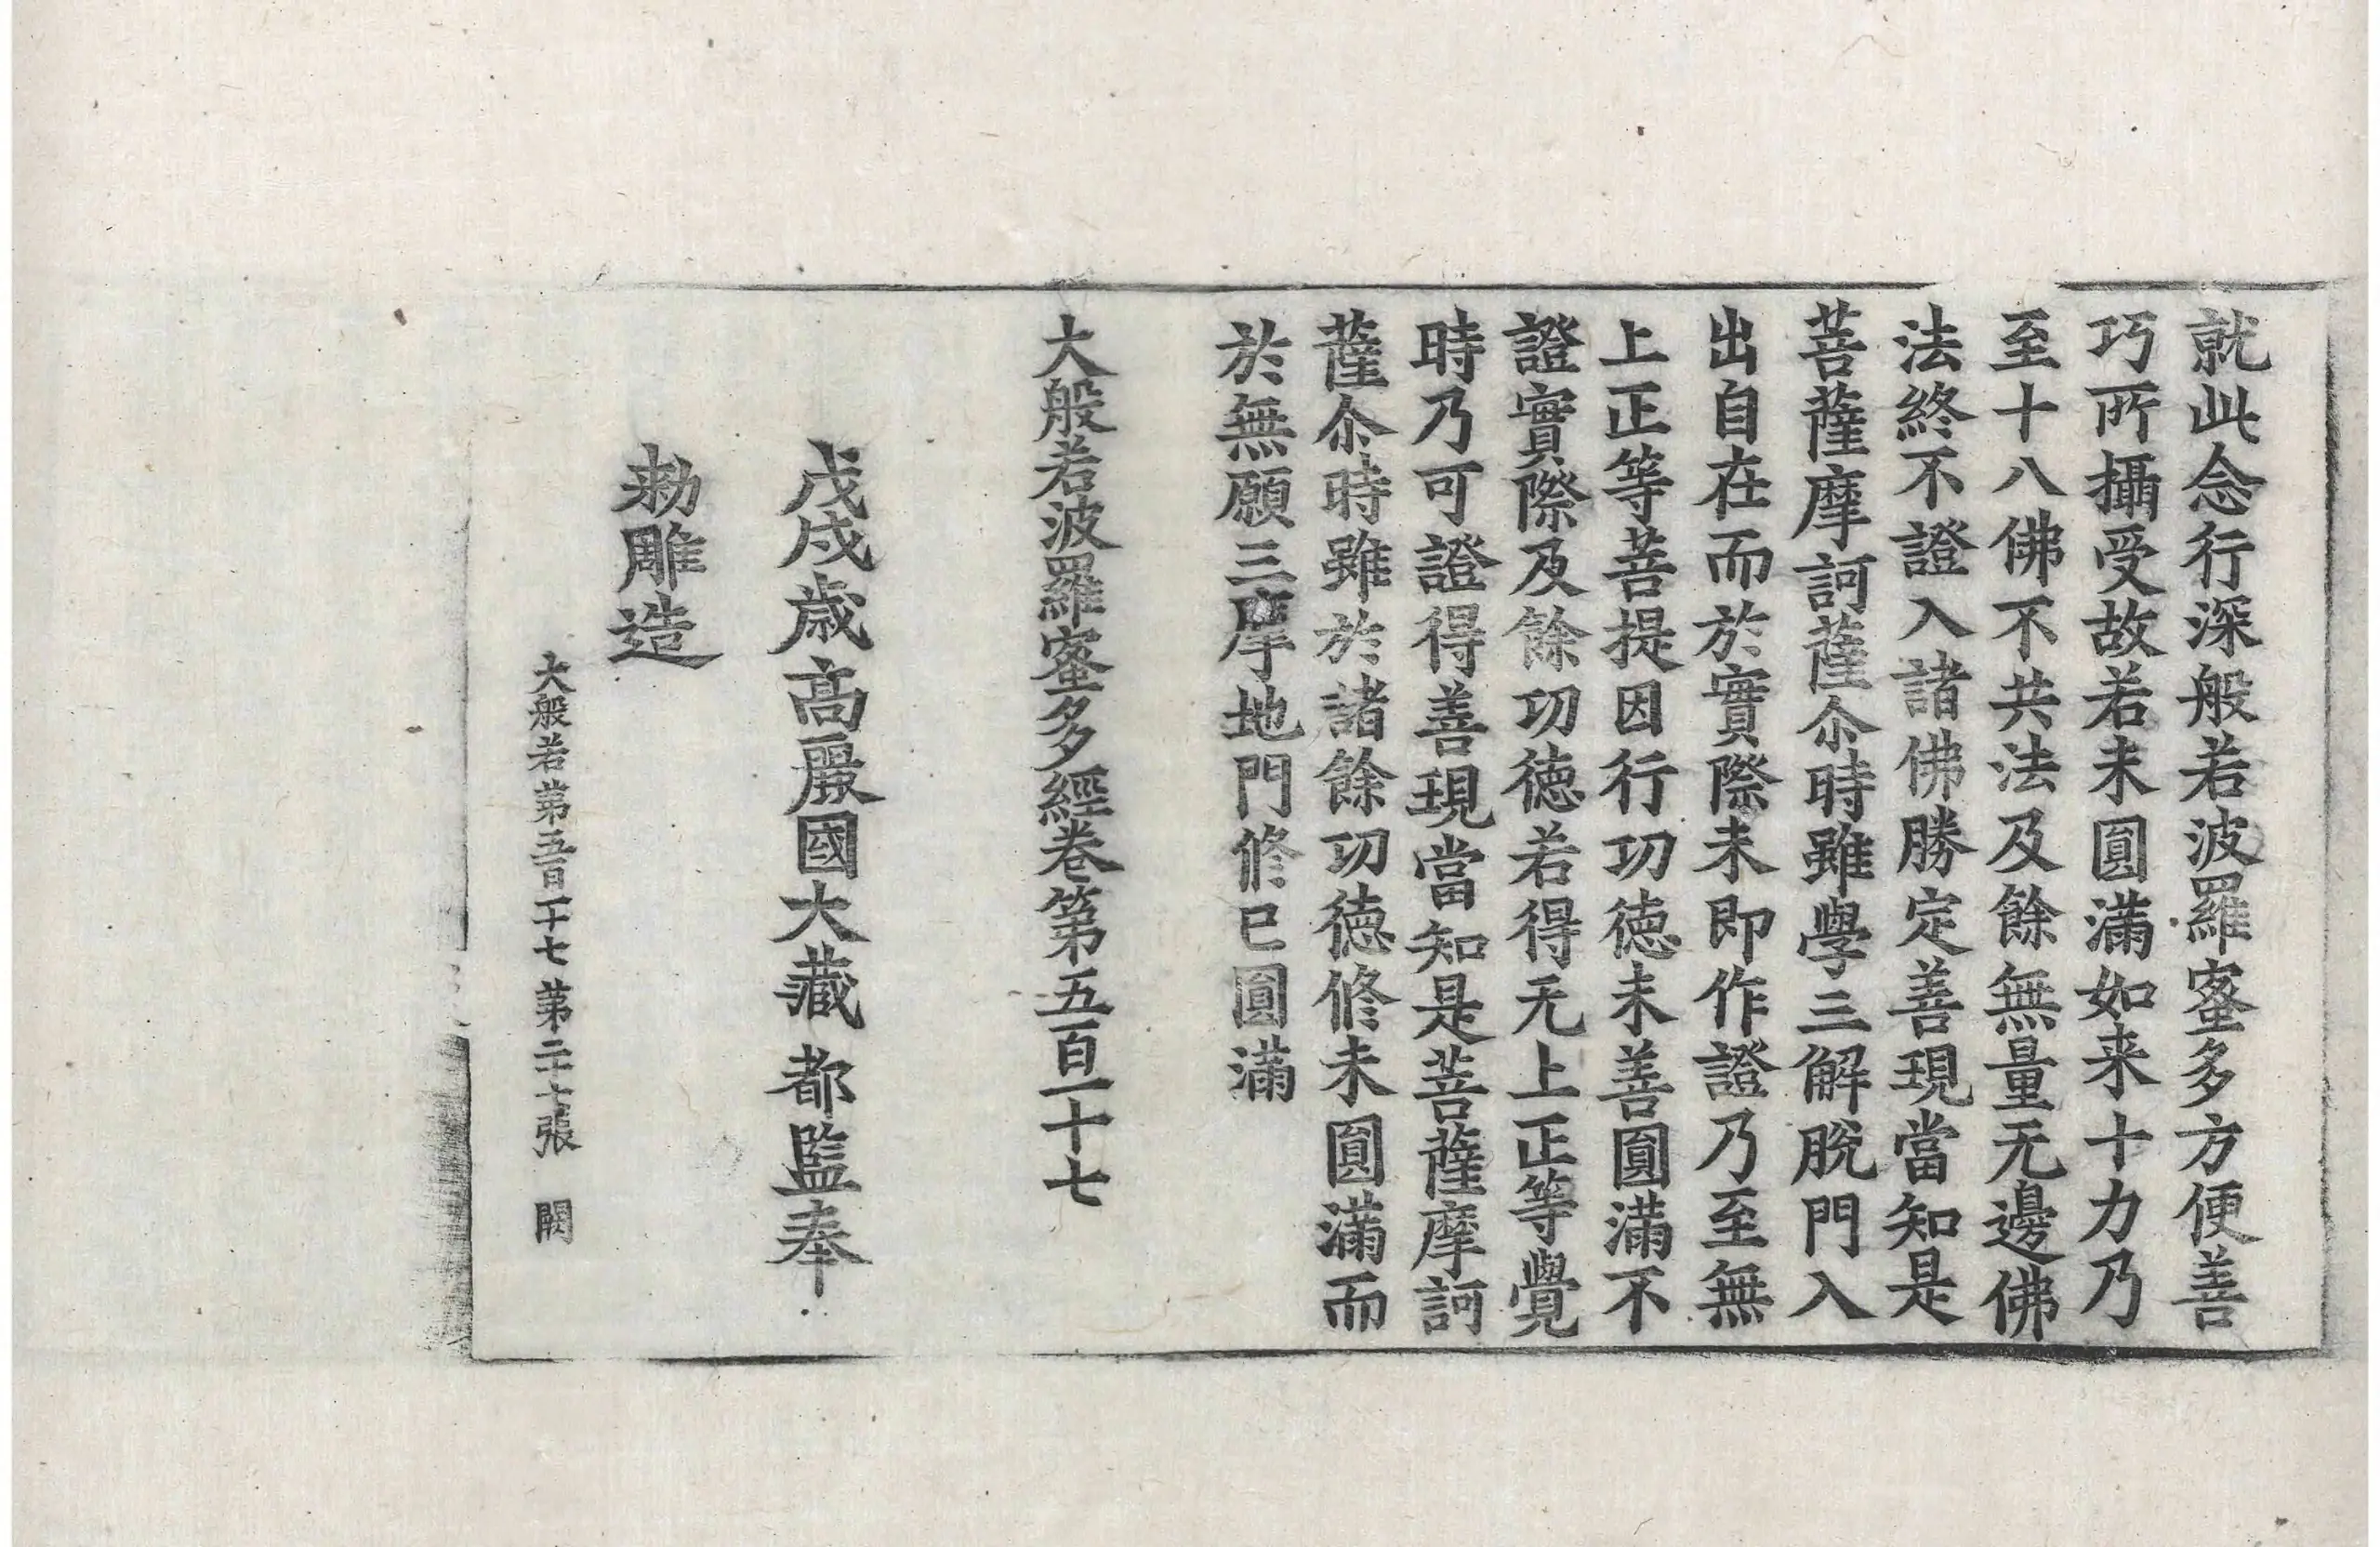 就此念行深般若波羅蜜多方便善
巧所攝受故若未圓滿如来十力乃
至十八佛不共法及餘無量无邊佛
法終不證入諸佛勝定善現當知是
菩薩摩訶薩尒時雖學三解脫門入
出自在而於實際未即作證乃至無
上正等菩提因行功德未善圓滿不
證實際及餘功德若得无上正等覺
時乃可證得善現當知是菩薩摩訶
薩尒時雖於諸餘功德修未圓滿而
於無願三摩地門修已圓滿
大般若波羅蜜多經卷第五百一十七
戊戌歲高麗國大藏都監奉
勅雕造
大般若第五百一十七 第二十七張 闕